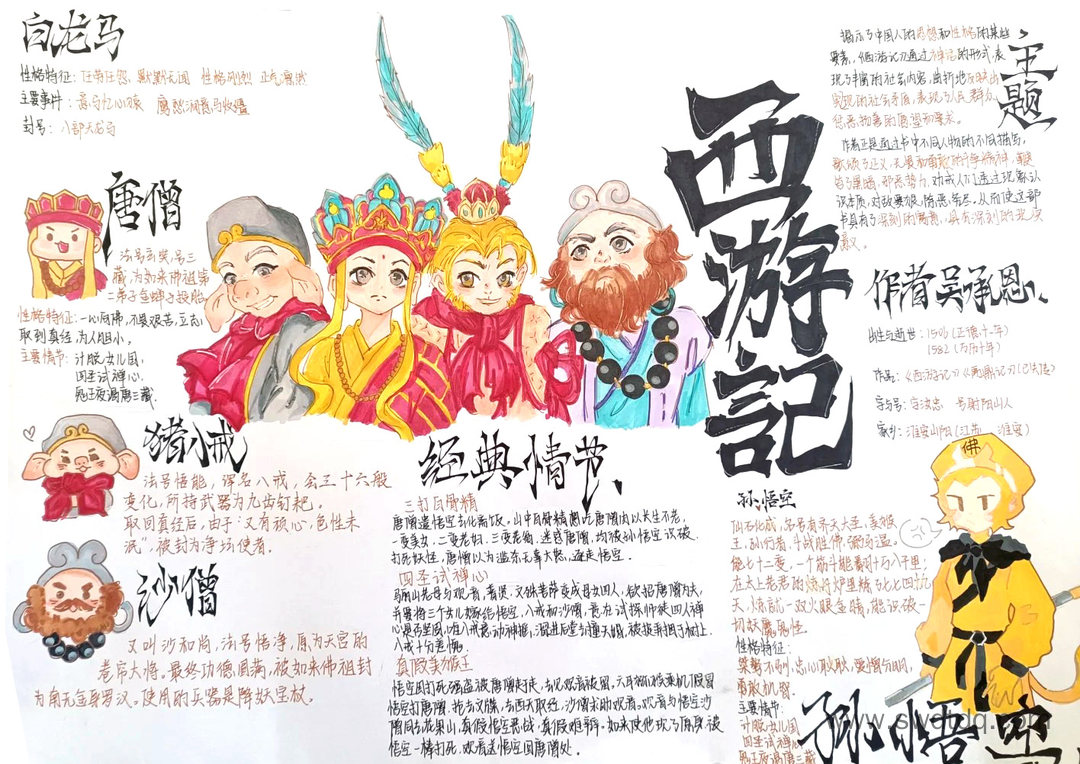 白龙马
性格特征：任劳任怨，默默无闻 性格刚烈 正气凛然
主要事件：意马忆心猿 鹰愁涧意马收缰
封号：八部天龙马
唐僧
法号玄奘，号三
藏，为如来佛祖第
二弟子金蝉子投胎
性格特征：一心向佛，不畏艰苦，立志
取到真经，为人胆小。
主要情节：计脱女儿国，
四圣试禅心，
鬼王夜谒唐三藏
猪八戒
法号悟能，浑名八戒，会三十六般
变化，所持武器为九齿钉耙。
取回真经后，由于“又有顽心，色性未
泯”，被封为净坛使者。
沙僧
又叫沙和尚，法号悟净，原为天宫的
卷帘大将。最终功德圆满，被如来佛祖封
为南无金身罗汉。使用的兵器是降妖宝杖。
西游記
经典情节
三打白骨精
唐僧遣悟空去化斋饭。山中白骨精想吃唐僧肉以长生不老，
一变美女，二变老妇，三变老翁，迷惑唐僧，均被孙悟空识破
打死妖怪，唐僧以为滥杀无辜大怒，逐走悟空。
四圣试禅心
黎山老母与观音，普贤，文殊菩萨变成母女四人，欲招唐僧为夫，
并要将三个女儿嫁给悟空，八戒和沙僧，意在试探师徒四人禅
心是否坚固，唯八戒
八戒十分羞愧
真假美猴王
悟空因打死强盗被唐僧赶走，去见观音被留，六耳猕猴乘机假冒
悟空打唐僧，抢去文牒，去西天取经。沙僧求助观音。观音与悟空沙
僧同去花果山，真假悟空恶战，真假难辨。如来使他现了原身，被
悟空一棒打死，观音送悟空回唐僧处。
主题
揭示了中国人的思想和性格的某些
要素，《西游记》通过神话的形式，表
现了丰富的社会内容，曲折地反映出
现实的社会矛盾，表现了人民群众
惩恶扬善的愿望和要求。
作者正是通过书中不同人物的不同描写，
歌颂了正义，无畏和勇敢的斗争精神，鞭挞
了黑暗，邪恶势力，劝戒人们透过现象认
识本质，对敌要狠，除恶务尽。从而使这部
书具有了深刻的寓意，具有深刻的现实
意义。
作者吴承恩
出生与逝世：1506（正德十一年）
1582（万历十年）
作品：《西游记》《禹鼎记》
字与号：字汝忠 号射阳山人
家乡：淮安山阳（江苏 淮安）
佛
孙悟空
仙石化成，名号有齐天大圣，美猴
王，孙行者，斗战胜佛，弼马温。
他七十二变，一个筋斗能翻十万八千里；
在太上老君的炼丹炉里炼了七七四十九
天，炼就一双火眼金睛，能识破一
切妖魔鬼怪
性格特征：
桀骜不驯，忠心耿耿，爱憎分明，
勇敢机智。
主要情节：
计脱女儿国
四圣试禅心
鬼王夜谒唐三藏
孙悟空